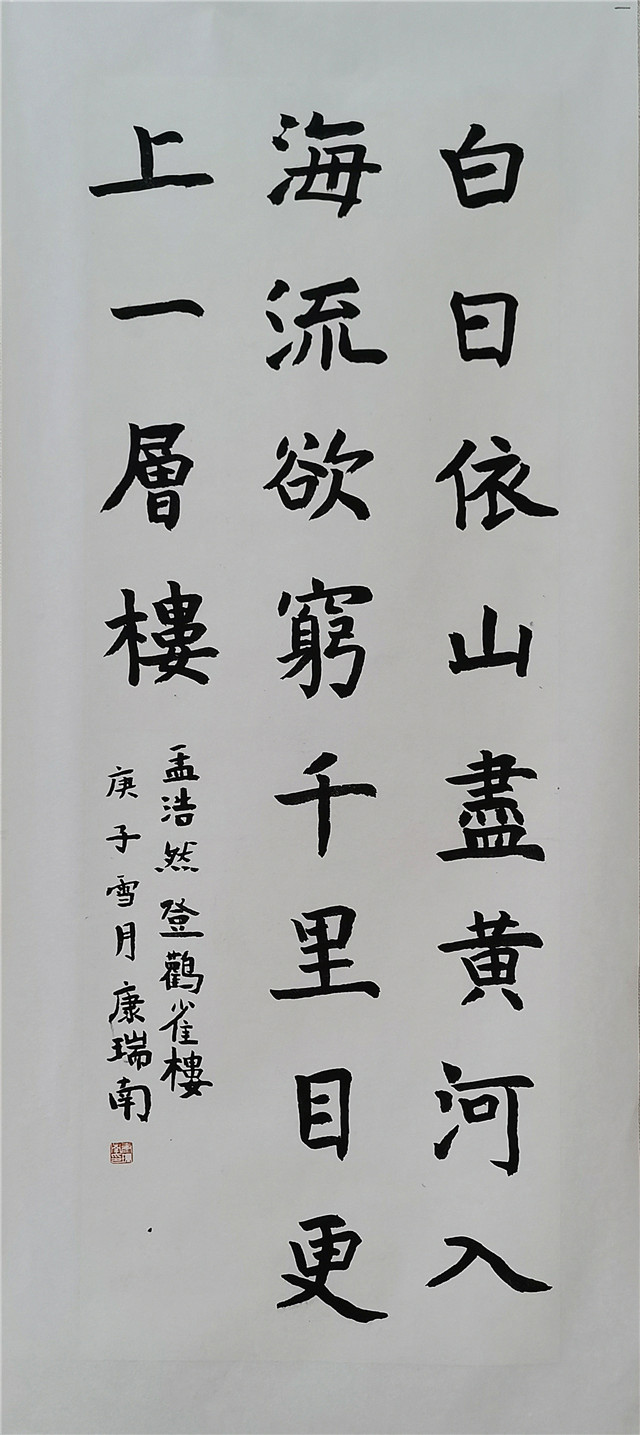 白日依山盡黄河入
海流欲窮千里目更
上一層樓
孟浩然登鸛雀樓
庚子雪月康瑞南